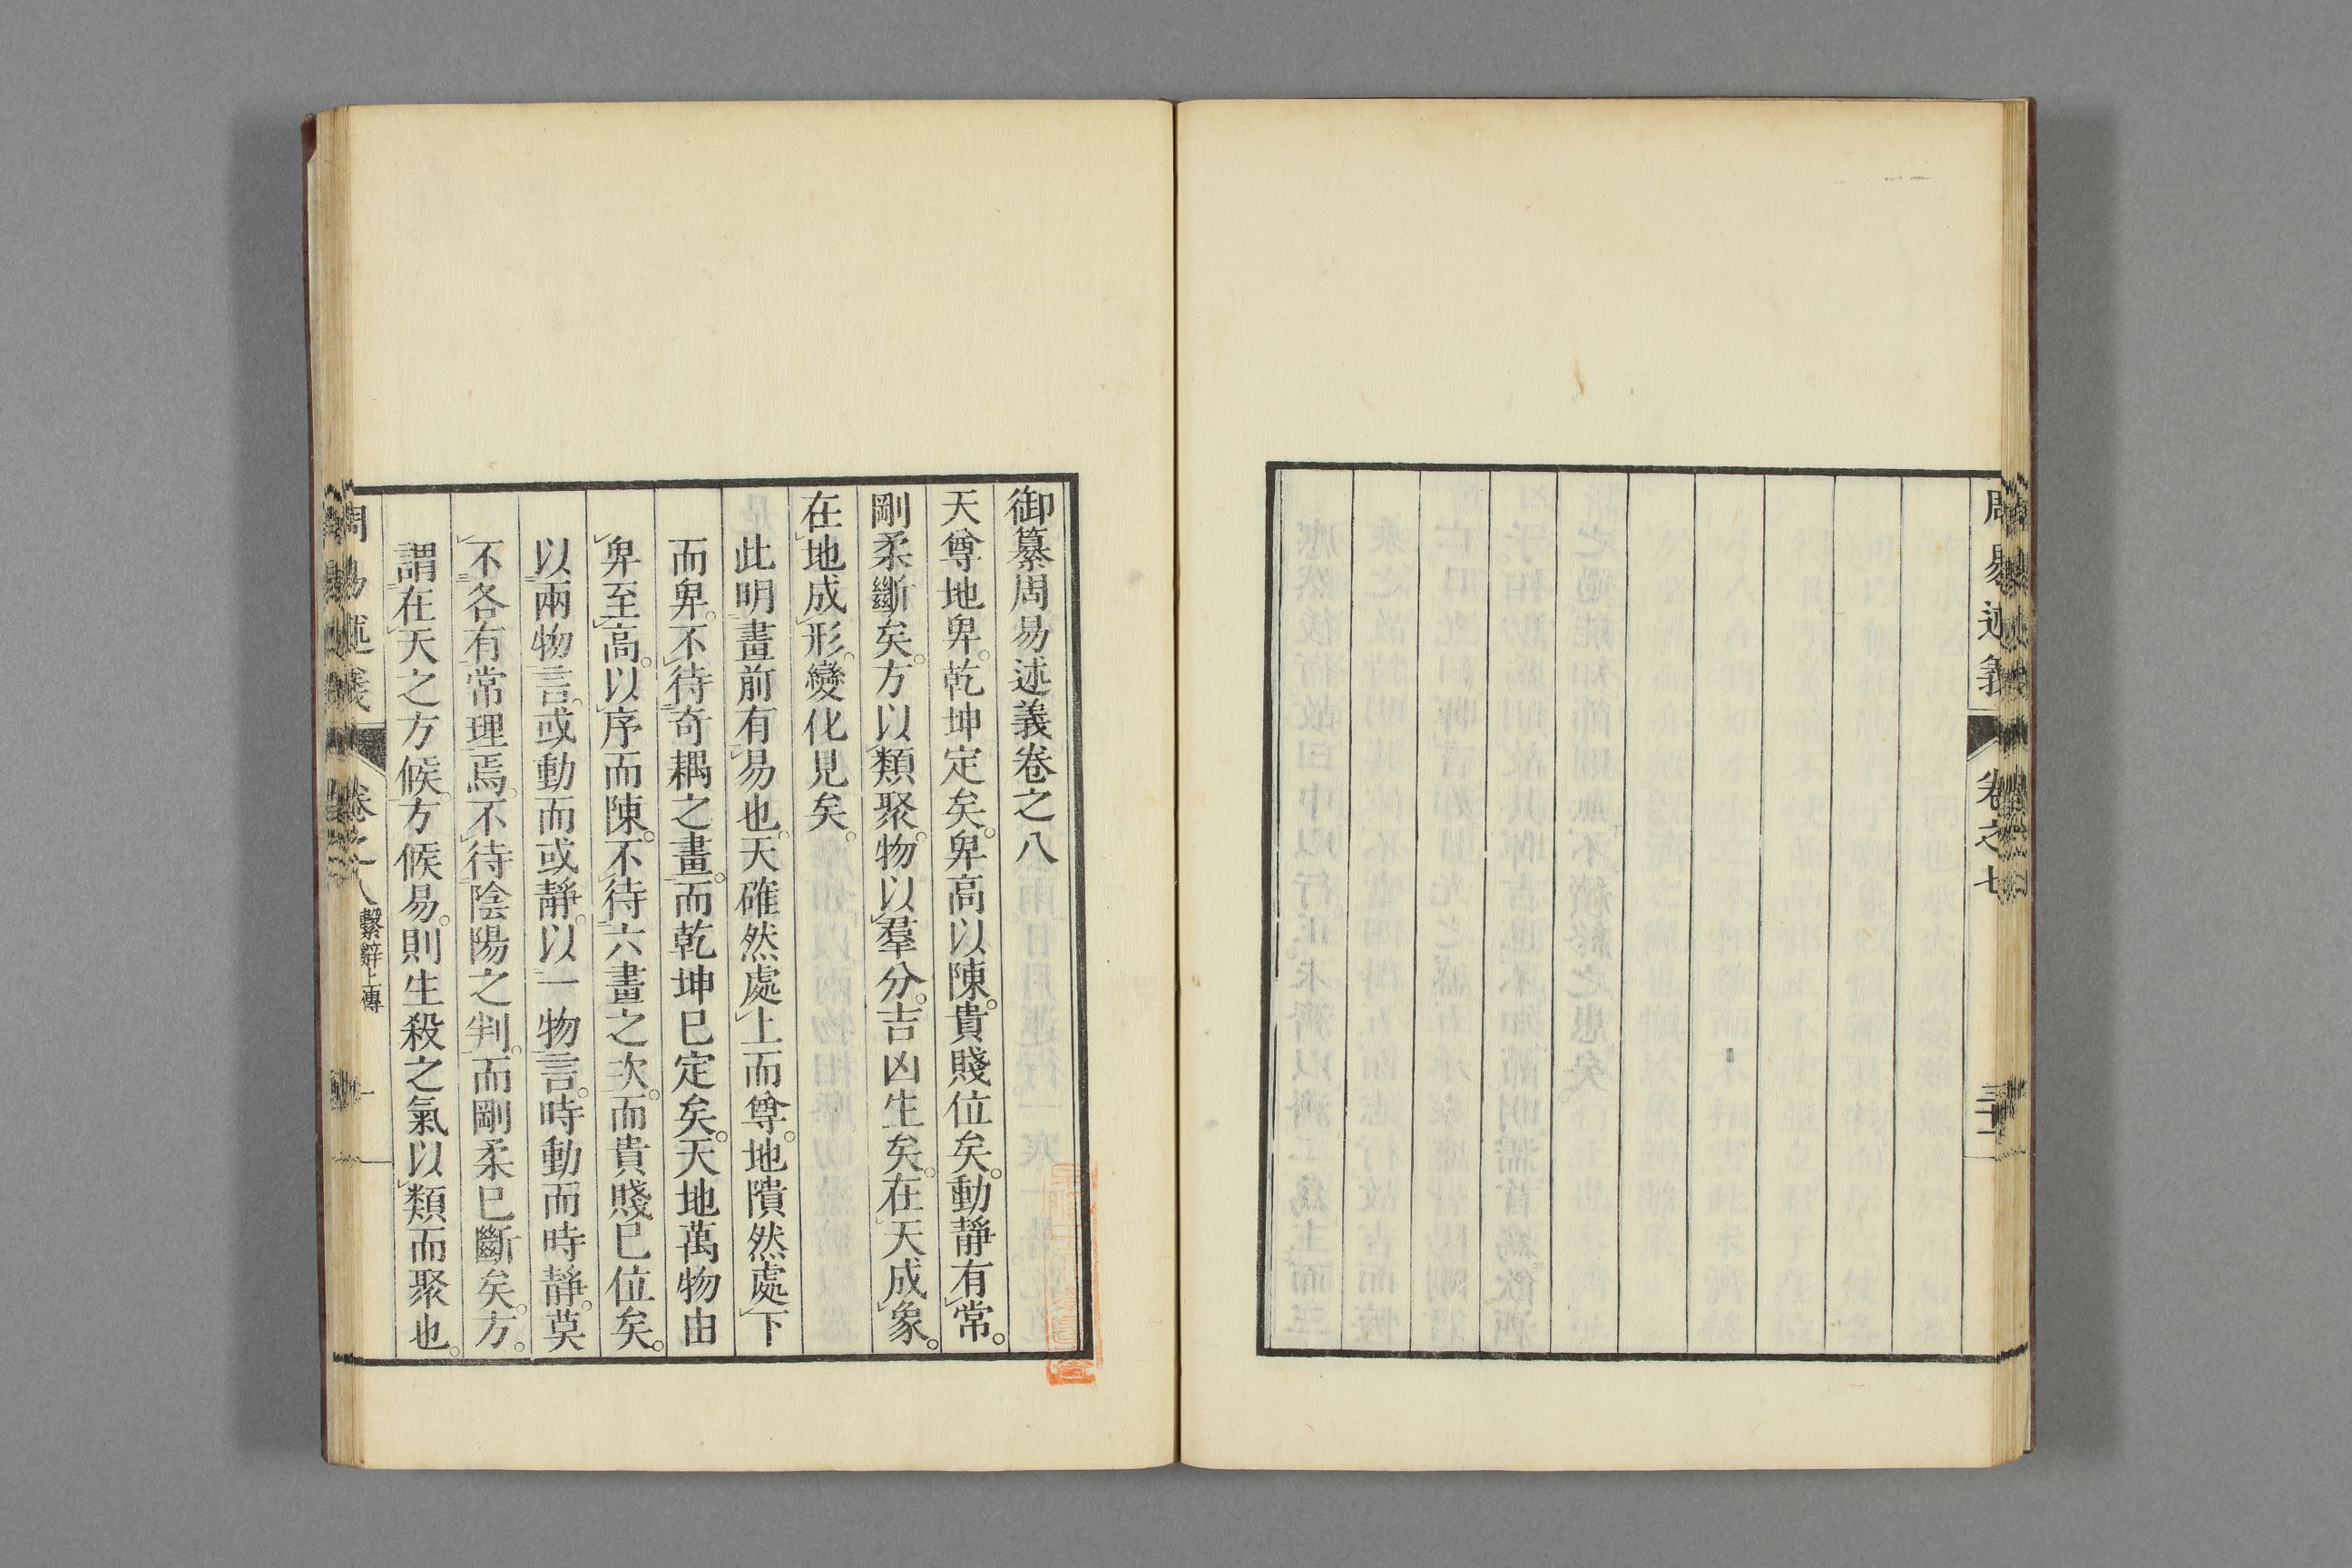 周易述義 卷之七 三十一
御纂周易述義卷之八
天尊地卑。乾坤定矣。卑高以陳。貴賤位矣。動靜有常。
剛柔斷矣。方以類聚。物以羣分。吉凶生矣。在天成象。
在地成形。變化見矣。
此明畫前有易也。天確然處上而尊。地隤然處下
而卑。不待奇耦之畫。而乾坤已定矣。天地萬物由
卑至高。以序而陳。不待六畫之次。而貴賤已位矣。
以兩物言。或動而或靜。以一物言。時動而時靜。莫
不各有常理焉。不待陰陽之判。而剛柔已斷矣。方。
謂在天之方候。方候易。則生殺之氣以類而聚也。
周易述義 卷之八 繫辭上傳 一